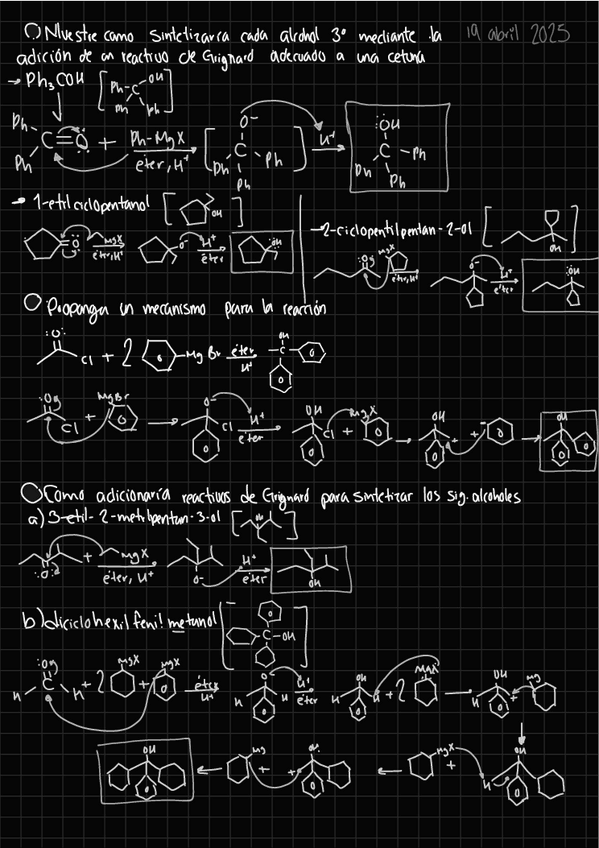 Muestre como sintetizaría cada alcohol 3° mediante la
19 abril 2025
adición de un reactivo de Grignard adecuado a una cetona
→ Ph₃COH [Ph-C-OH Ph Ph]
Ph Ph C=O + Ph-MgX éter, H⁺ [O⁻ C Ph Ph Ph] H⁺ :ÖH C Ph Ph Ph
→ 1-etilciclopentanol [OH]
→ 2-ciclopentilpentan-2-ol [OH]
O MgX éter, H⁺ O⁻ H⁺ éter OH
O MgX éter, H⁺ O⁻ H⁺ éter OH
Propónga un mecanismo para la reacción
:O: Cl + 2 MgBr éter H⁺ OH C
O Cl + MgBr → O⁻ Cl H⁺ éter OH Cl + MgX → OH + + → OH
Como adicionaría reactivos de Grignard para sintetizar los sig. alcoholes
a) 3-etil-2-metilpentan-3-ol [OH]
O + MgX éter, H⁺ O⁻ H⁺ éter OH
b) diciclohexil fenil metanol [C OH]
H C O H + 2 MgX + MgX éter H⁺ O⁻ H H H⁺ éter OH H H + 2 MgX → OH H + + Mg
OH ← Mg + OH + ← MgX + OH H